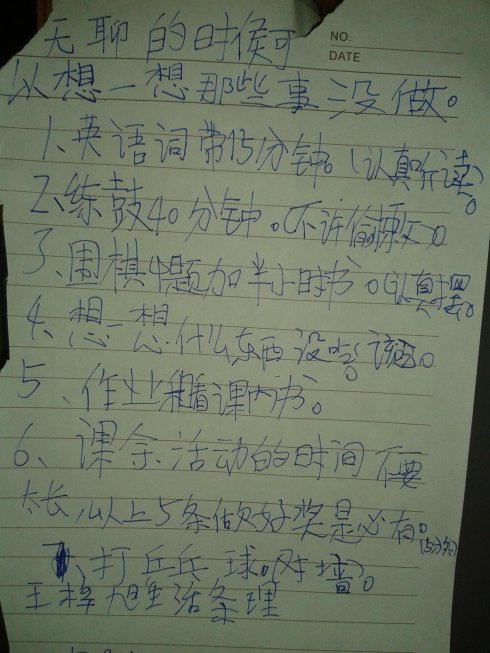 NO.
DATE
无聊的时候可
以想一想那些事没做。
1、英语词带15分钟。(认真听读)。
2、练鼓40分钟。(不许偷懒)。
3、围棋4题加半小时书。(认真摆)。
4、想一想什么东西没
5、作业 看课内书。
6、课余活动的时间不要
太长,以上5条做好奖是必有。(5分外)
、打乒乓球。对墙。
王梓旭生活条理